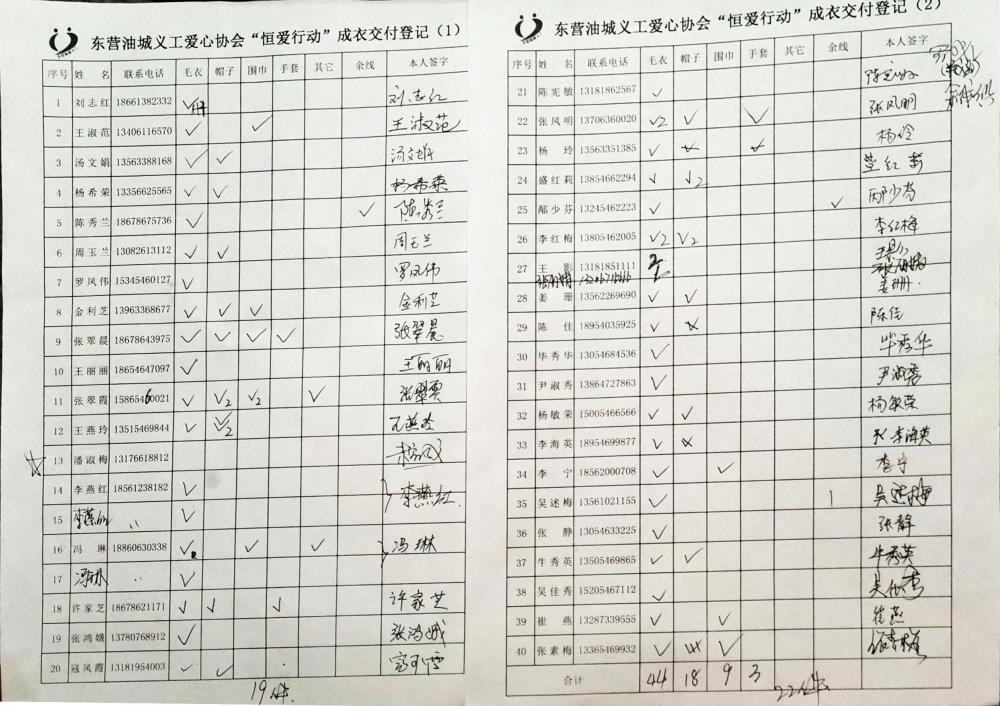 东营油城义工爱心协会“恒爱行动”成衣交付登记（1）
序号 姓名 联系电话 毛衣 帽子 围巾 手套 其它 余线 本人签字
1 刘志红 18661382332 ✓ 刘志红
2 王淑范 13406116570 ✓ ✓ 王淑范
3 汤文娟 13563388168 ✓ ✓ 汤文娟
4 杨希荣 13356625565 ✓ ✓ 杨希荣
5 陈秀兰 18678675736 ✓ ✓ 陈秀兰
6 周玉兰 13082613112 ✓ ✓ 周玉兰
7 罗凤伟 15345460127 ✓ 罗凤伟
8 金利芝 13963368677 ✓ ✓ ✓ 金利芝
9 张翠晨 18678643975 ✓ ✓ ✓ ✓ 张翠晨
10 王丽丽 18654647097 ✓ 王丽丽
11 张翠霞 15865460021 ✓ ✓2 ✓2 ✓ 张翠霞
12 王燕玲 13515469844 ✓ ✓2
13 潘淑梅 13176618812
14 李燕红 18561238182 ✓ 李燕红
15 〃 ✓
16 冯琳 18860630338 ✓ ✓ ✓ 冯琳
17 冯琳 〃 ✓
18 许家芝 18678621171 ✓ ✓ ✓ 许家芝
19 张鸿娥 13780768912 ✓ 张鸿娥
20 寇凤霞 13181954003 ✓ ✓
19件
东营油城义工爱心协会“恒爱行动”成衣交付登记（2）
序号 姓名 联系电话 毛衣 帽子 围巾 手套 其它 余线 本人签字
21 陈宪敏 13181862567 ✓ 陈宪敏
22 张凤明 13706360020 ✓2 ✓ ✓ 张凤明
23 杨玲 13563351385 ✓ 杨玲
24 盛红莉 13854662294 ✓ ✓2
25 邴少芬 13245462223 ✓ ✓ 邴少芬
26 李红梅 13805462005 ✓2 ✓2 李红梅
27 王影 13181851111
28 姜珊 13562269690 ✓ ✓ 姜珊
29 陈佳 18954035925 ✓ 陈佳
30 毕秀华 13054684536 ✓ 毕秀华
31 尹淑秀 13864727863 ✓ 尹淑秀
32 杨敏荣 15005466566 ✓ ✓ 杨敏荣
33 李海英 18954699877 ✓ 李海英
34 李宁 18562000708 ✓ ✓ 李宁
35 吴述梅 13561021155 ✓ 吴述梅
36 张静 13054633225 ✓ 张静
37 牛秀英 13505469865 ✓ ✓ 牛秀英
38 吴佳秀 15205467112 ✓
39 崔燕 13287339555 ✓ ✓ 崔燕
40 张素梅 13365469932 ✓ ✓
合计 44 18 9 3
22件